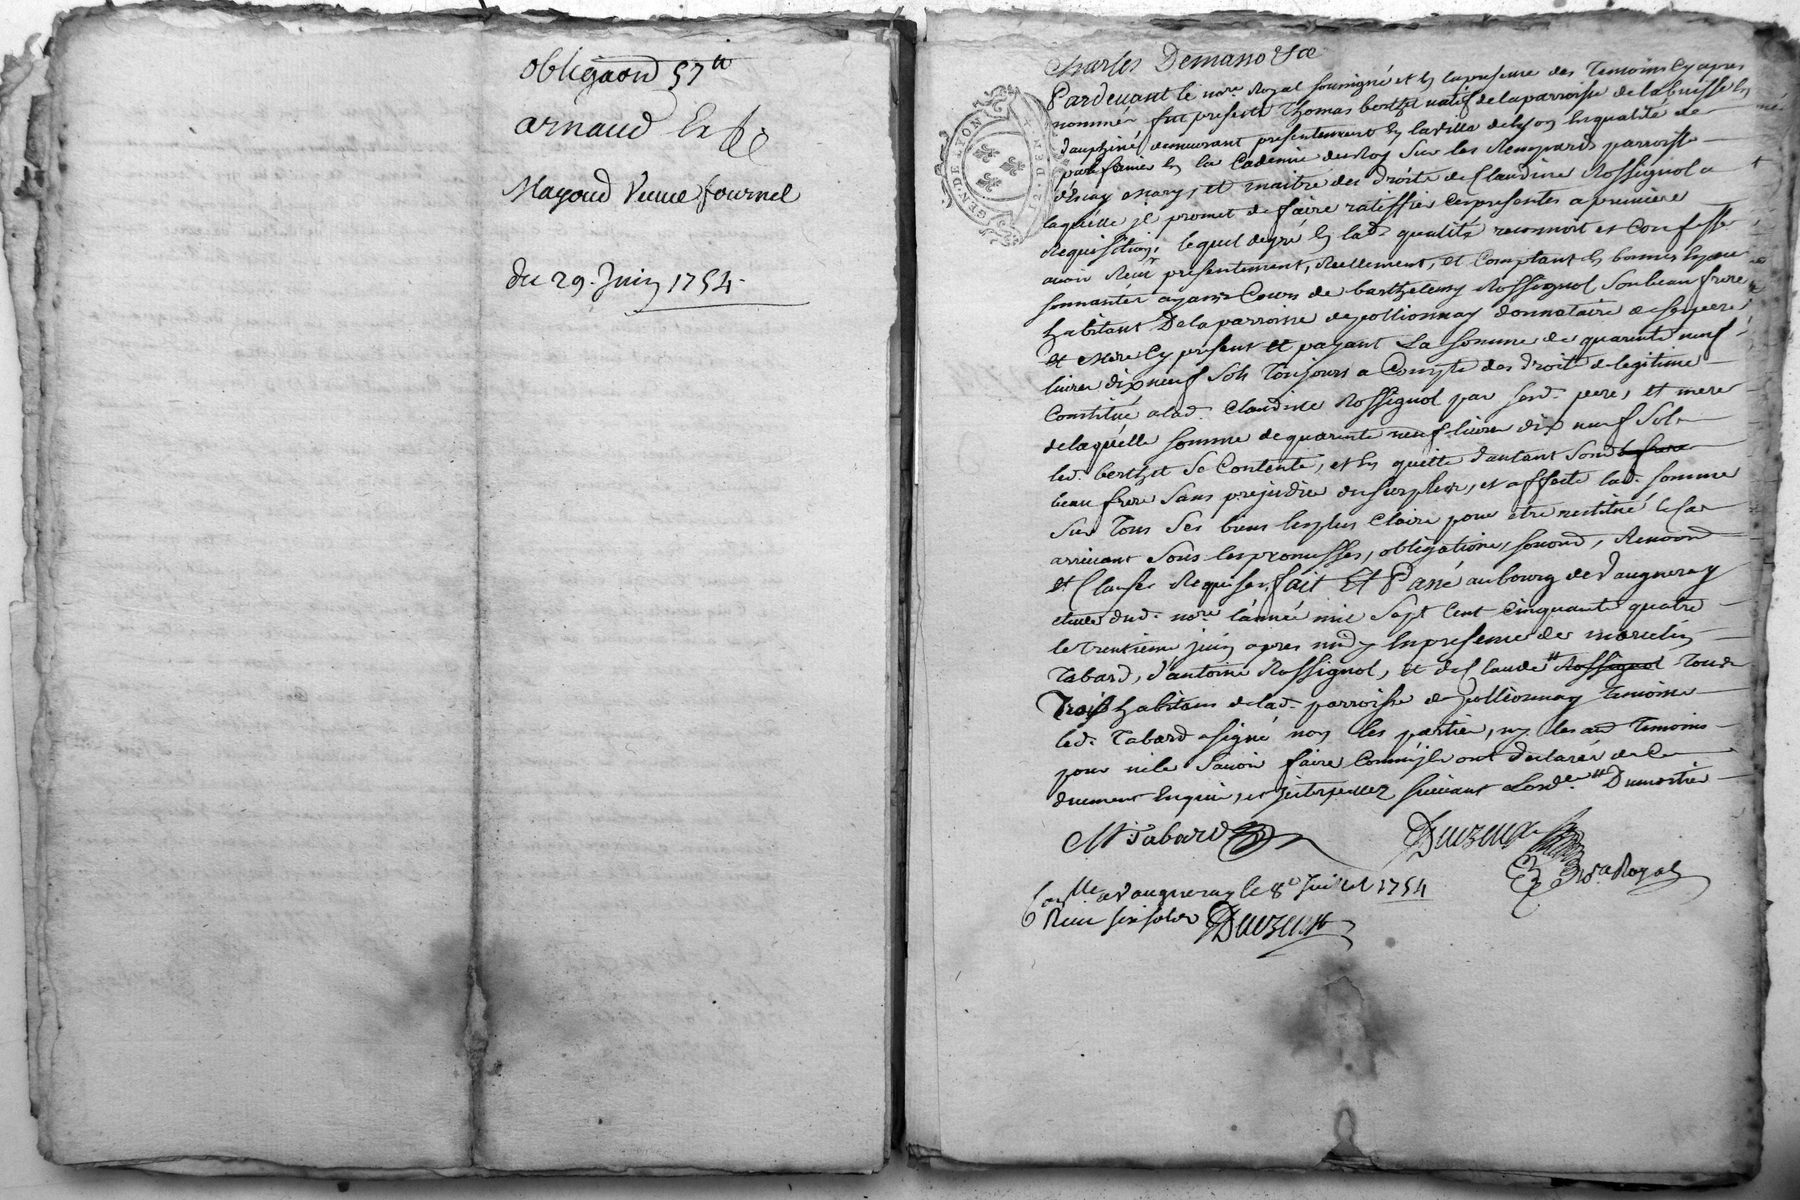 obligaond 57tt
arnaud
Mayoud Veuve fournel
du 29. Juin 1754.
Charles Demano &ca
GEN. DE LYON
2. D. DEMI
Pardevant le nore. Royal soussigné et En la presence des Temoins Cyapres
nommés fut present Thomas berthet natif de la parroisse de la buisse En
dauphiné demeurant presentement En la ville de lyon En qualité de
palfrenier En la Cademie du Roy Sur les Remparts parroisse
d'Enay mary, et maitre des droits de Claudine Rossignol a
laquelle il promet de faire ratiffier ces presentes a premiere
Requisition, lequel de gré En lad. qualité reconnoit et Confesse
avoir Reçu presentement, Reellement, et Comptant En bonnes Especes
sonnantes ayants Cours de barthelemy Rossignol Son beau frere
habitant De la parroisse de pollionnay donnataire de ses pere
et mere Cy present Et payant La somme de quarente neuf
livres dix neuf Sols Toujours a Compte des droits de legitime
Constitué a lad. Claudine Rossignol par Sesd. pere, et mere
de laquelle somme de quarente neuf livres dix neuf Sols
led. berthet Se Contente, et En quitte d'autant Sond. le frere
beau frere Sans prejudice du surplus, et affecte lad. somme
Sur Tous Ses biens les plus Claire pour etre restitué le Cas
arrivant Sous les promesses, obligations, soumd, Renond
et Clauses Requises, fait Et Passé au bourg de Vaugneray
etude dud. nore. l'année mil Sept Cent Cinquante quatre
le trentieme juin apres midy En presence de marcelin
Tabard, d'antoine Rossignol, et de Claude Rossignol Tous
Trois habitans de lad. parroisse de pollionnay Temoins
led. Tabard a signé non les parties, ny les aud Temoins
pour ne le Savoir faire Comm'ils ont declarés de Ce
duement Enquis, et interpellez suivant Lord.ce Dumortier
M Tabard
Nore. Royal
Conlle. a Vaugneray le 8e Juillet 1754
Reçu six sols